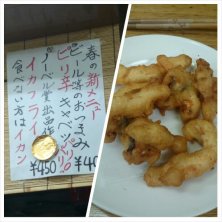 春の新メニュー
ビール等のおつまみ
ピリ辛キャベツ
¥40
ノーベル堂出西作
イカフライ
¥450
食べない方はイカン